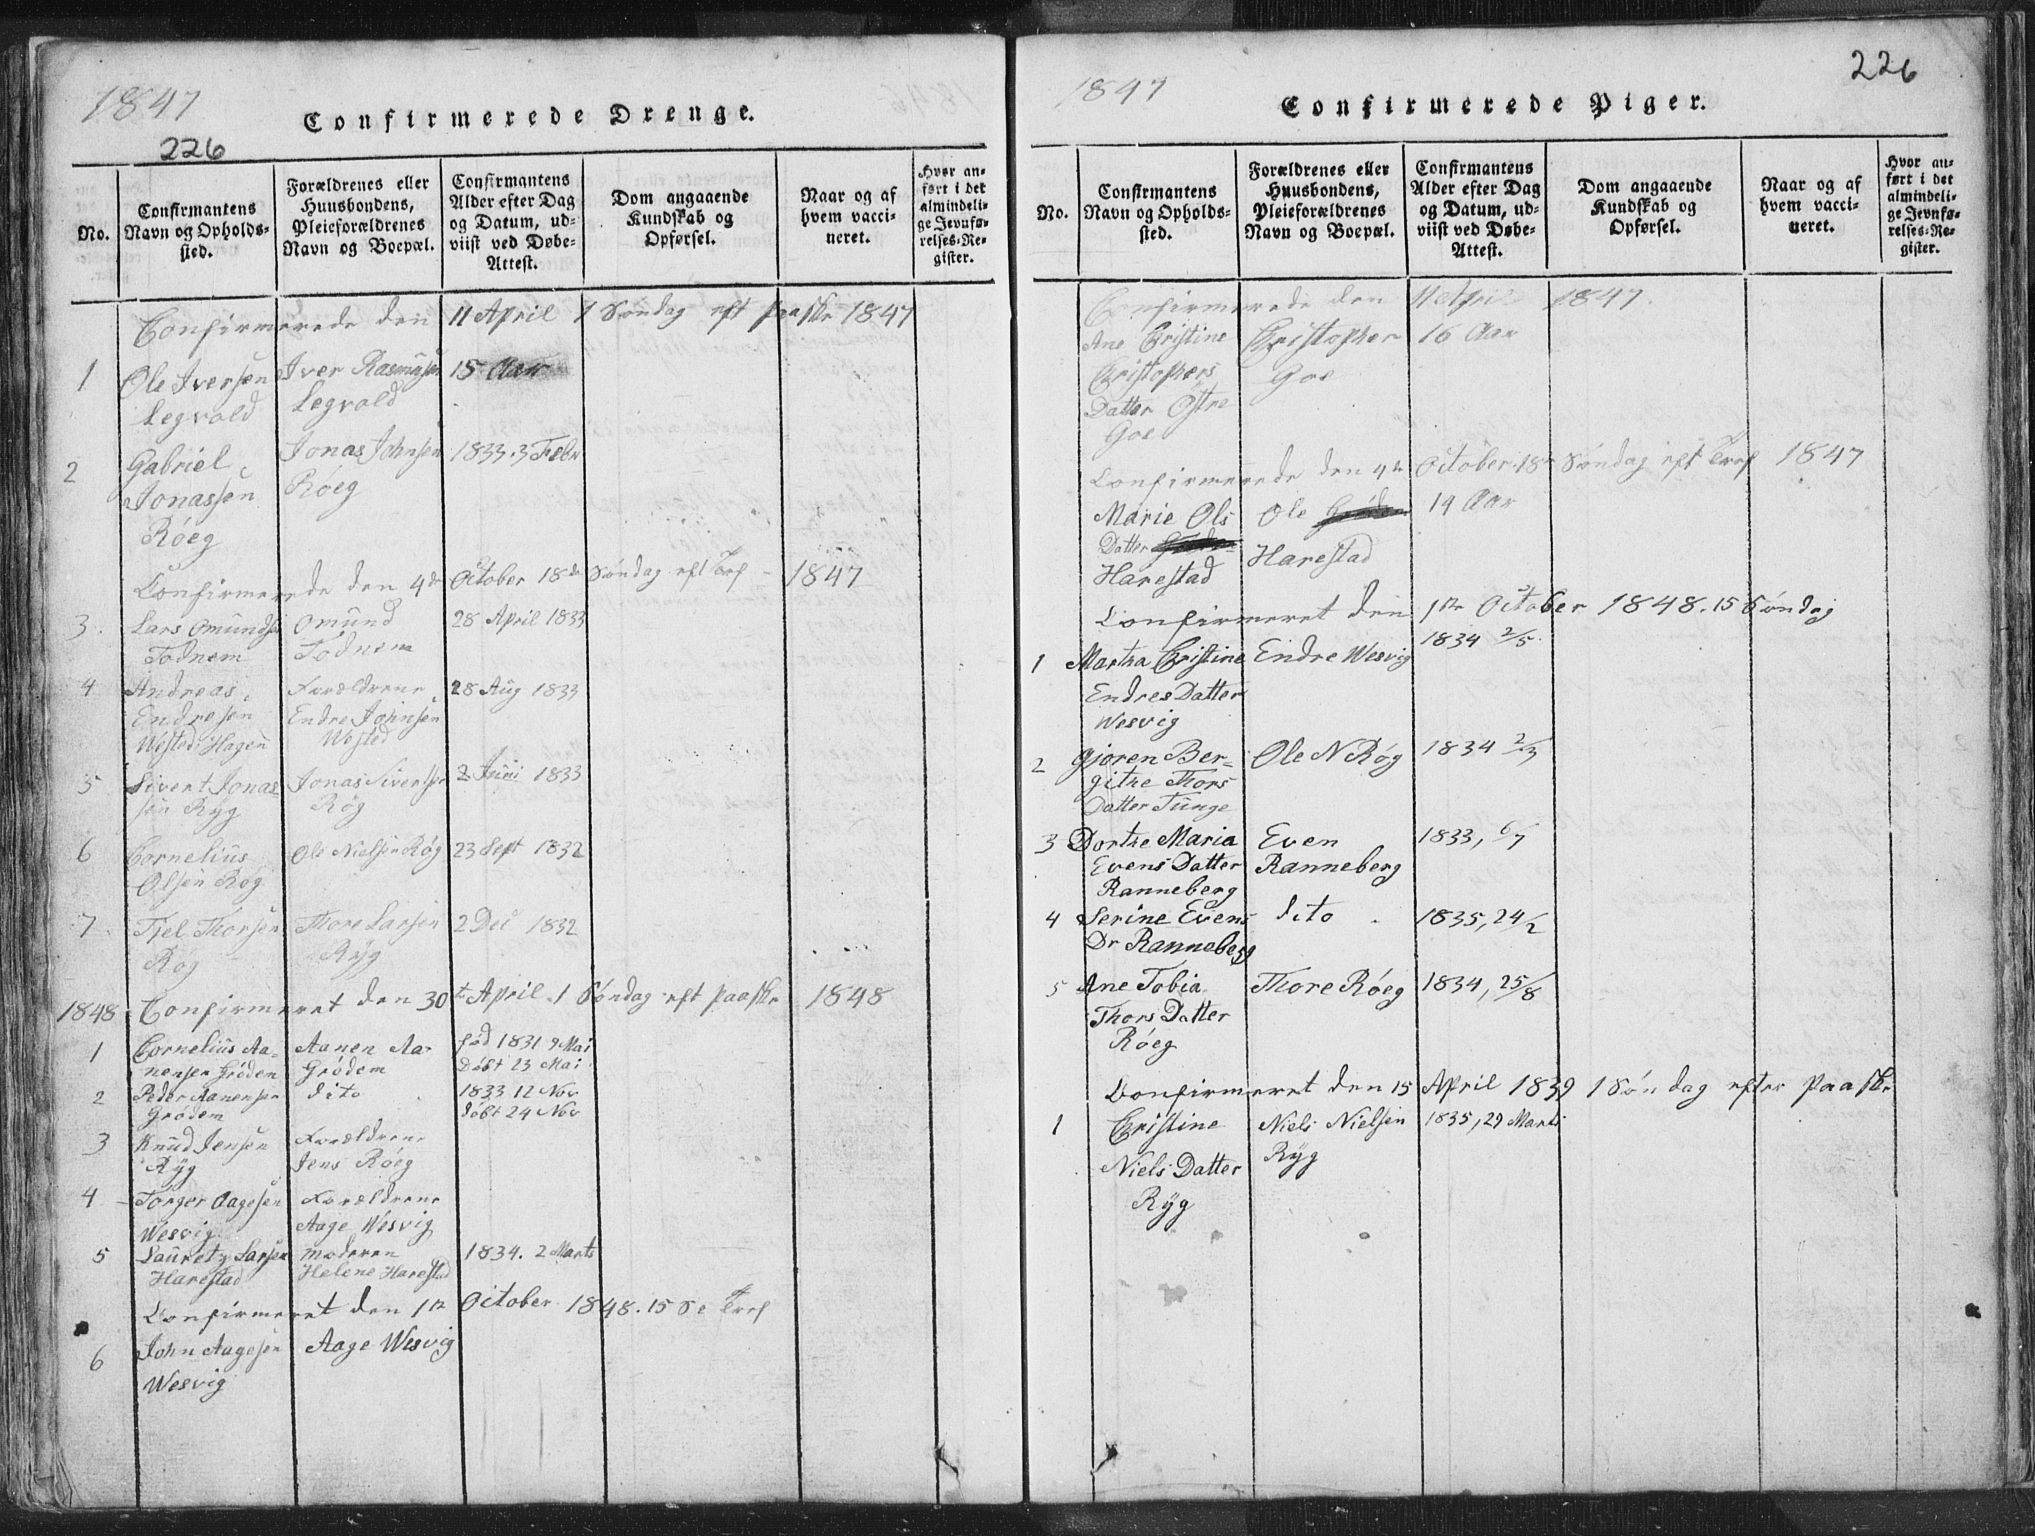 1847
Confirmerede Drenge.
226
No.
Confirmantens
Navn og Opholds-
sted.
Forældrenes eller
Huusbondens,
Pleieforældrenes
Navn og Boepæl.
Confirmantens
Alder efter Dag
og Datum, ud-
viist ved Døbe-
Attest.
Dom angaaende
Kundskab og
Opførsel.
Naar og af
hvem vacci-
neret.
Hvor an-
ført i det
almindeli-
ge Jevnfø-
relses-Re-
gister.
Confirmerede den 11 April 1 Søndag eft Paaske 1847
1 Ole Iversen Iver Rasmusen 15 Aar
Legvold Legvold
2 Gabriel Jonas Johnsen 1833. 3 Febr
Jonassen Róeg
Róeg
Confirmerede den 4de October 18de Søndag eft Tref 1847
3. Lars Omundsen Omund 28 April 1833
Todnem Todnem
4 Andreas Forældrene 28 Aug 1833
Endresen Endre Johnsen
Wested Hagen Wested
5 Sivert Jonas- Jonas Sivertsen 2 Juni 1833
sen Ryg Róg
6 Cornelius Ole Nielsen Róg 23 Sept 1832
Olsen Rog
7. Tjel Thorsen Thore Larsen 2 Dec 1832
Rog Ryg
1848 Confirmeret den 30t April. 1 Søndag eft Paaske 1848
1 Cornelius Aa- Aanen Aa- fød 1831 9 Mai
nensen Gróden Gródem Døbt 23 Mai
2 Peder Aanensen dito 1833 12 Nov
Grødem døbt 24 Nov
3 Knud Jensen Forældrene
Ryg Jens Róeg
4 Torger Aagesen Forældrene
Wesvig Aage Wesvig
5 Lauretz Larsen moderen 1834. 2 Marts
Harestad Helene Harestad
Confirmeret den 1te October 1848. 15 Se Tref
6 John Aagesen Aage Wesvig
Wesvig
226
1847
Confirmerede Piger.
No.
Confirmantens
Navn og Opholds-
sted.
Forældrenes eller
Huusbondens,
Pleieforældrenes
Navn og Boepæl.
Confirmantens
Alder efter Dag
og Datum, ud-
viist ved Døbe-
Attest.
Dom angaaende
Kundskab og
Opførsel.
Naar og af
hvem vacci-
neret.
Hvor an-
ført i det
almindeli-
ge Jevnfø-
relses-Re-
gister.
Confirmerede den 11 April 1847.
Ane Cristine Cristopher 16 Aar
Cristophers Goe
Datter Østre
Goe
Confirmerede den 4de October 18de Søndag eft Tref 1847
Marie Ols Ole 14 Aar
Datter
Harestad Harestad
Confirmeret den 1te October 1848. 15 Søndag
1 Martha Cristine Endre Wesvig 1834 2/5
Endres Datter
Wesvig
2 Gjoren Ber- Ole N Róg 1834 2/3
githe Thors
Datter Tunge
3 Dorthe Maria Even 1833, 6/7
Evens Datter Ranneberg
Ranneberg
4 Serine Evens dito 1835, 24/2
Dr Ranneberg
5 Ane Tobia Thore Róeg 1834, 25/8
Thors Datter
Róeg
Confirmeret den 15 April 1839 1 Søndag efter Paaske
1 Cristine Niels Nielsen 1835, 29 Marts
Niels Datter Ryg
Ryg